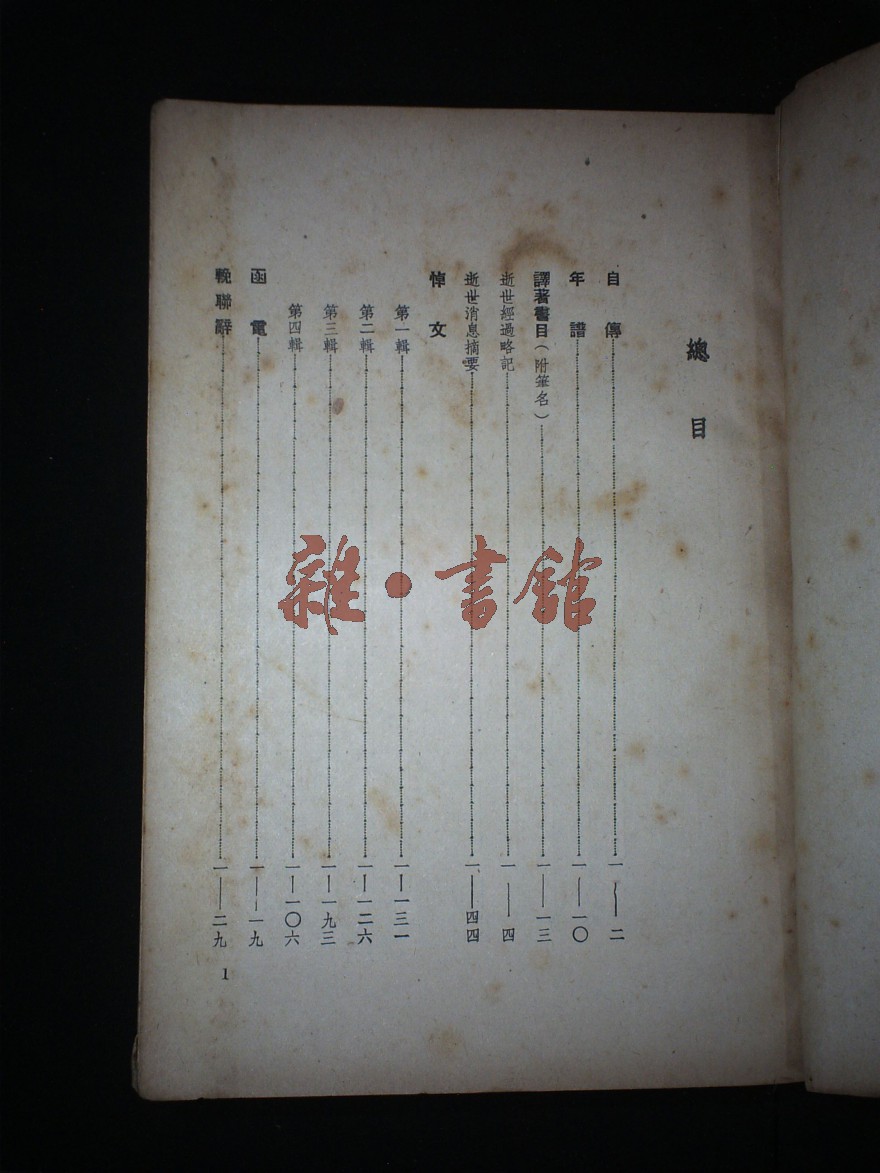 總目
自傳 一——二
年譜 一——一〇
譯著書目(附筆名) 一——一三
逝世經過略記 一——四
逝世消息摘要 一——四四
悼文
第一輯 一—一三一
第二輯 一—一二六
第三輯 一—一九三
第四輯 一—一〇六
函電 一——一九
輓聯辭 一——二九
1
雜·書館